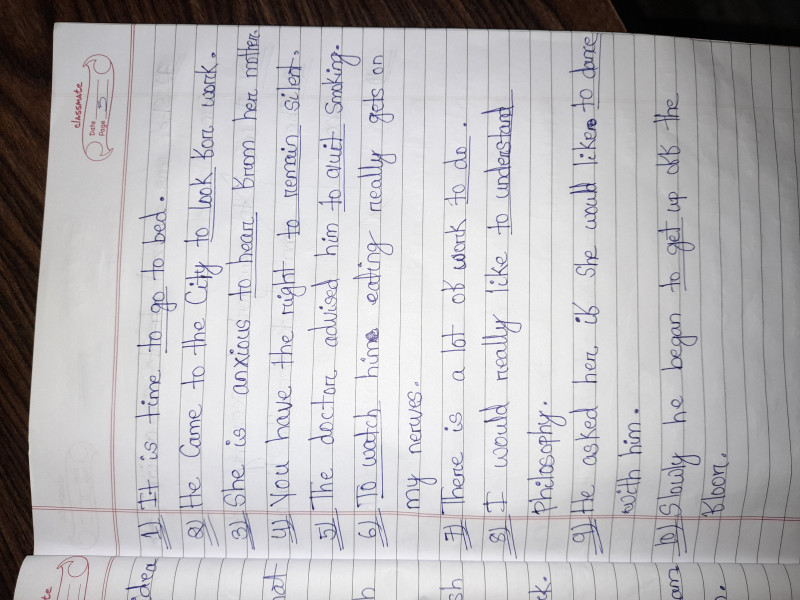 classmate
Date
Page 5
1) It is time to go to bed.
2) He Came to the City to look for work.
3) She is anxious to hear from her mother.
4) You have the right to remain silent.
5) The doctor advised him to quit smoking.
6) To watch him eating really gets on
my nerves.
7) There is a lot of work to do.
8) I would really like to understand
Philosophy.
9) He asked her if she would like to dance
with him.
10) Slowly he began to get up off the
floor.
idea